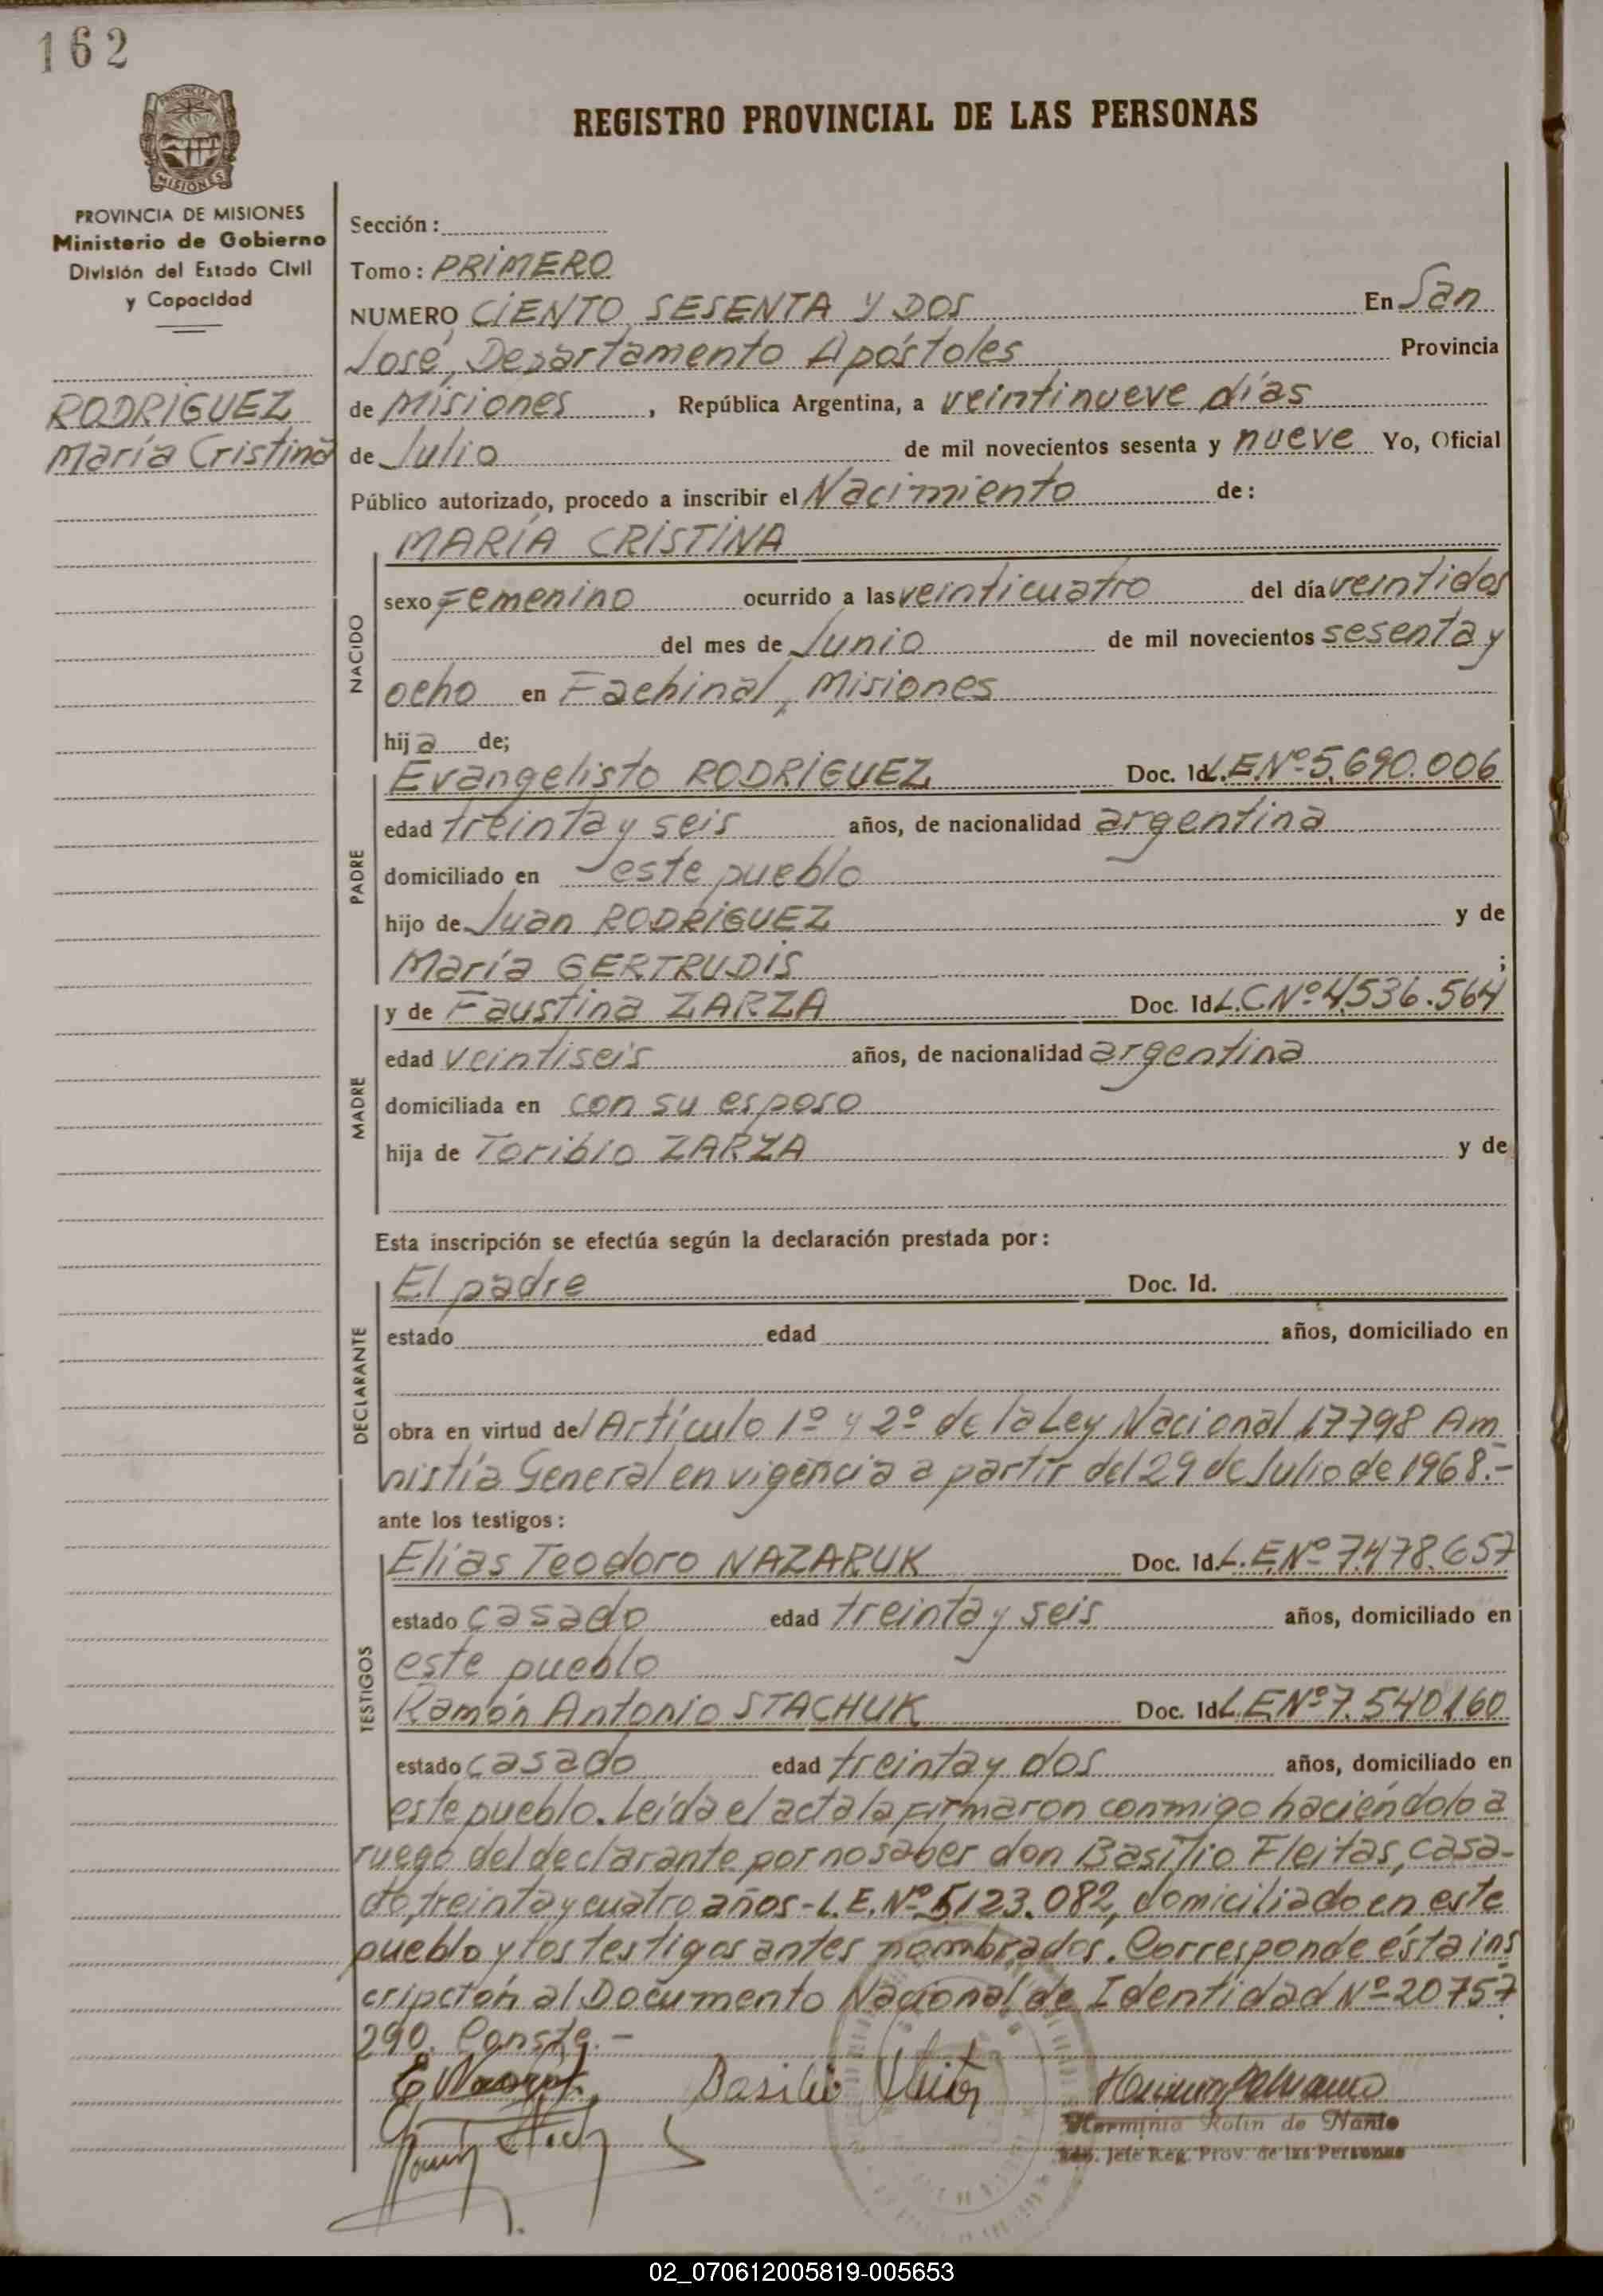 162
PROVINCIA DE MISIONES
MISIONES
REGISTRO PROVINCIAL DE LAS PERSONAS
PROVINCIA DE MISIONES
Ministerio de Gobierno
División del Estado Civil
y Capacidad
RODRIGUEZ
María Cristina
Sección:
Tomo: PRIMERO
NUMERO CIENTO SESENTA Y DOS En San
José, Departamento Apóstoles Provincia
de Misiones, República Argentina, a veintinueve días
de Julio de mil novecientos sesenta y nueve Yo, Oficial
Público autorizado, procedo a inscribir el Nacimiento de:
NACIDO
MARÍA CRISTINA
sexo Femenino ocurrido a las veinticuatro del día veintidos
del mes de Junio de mil novecientos sesenta y
ocho en Fachinal, Misiones
hija de;
PADRE
Evangelisto RODRÍGUEZ Doc. Id L.E Nº 5.690.006
edad treinta y seis años, de nacionalidad argentina
domiciliado en este pueblo
hijo de Juan RODRÍGUEZ y de
María GERTRUDIS ;
MADRE
y de Faustina ZARZA Doc. Id L.C Nº 4.536.564
edad veintiseis años, de nacionalidad argentina
domiciliada en con su esposo
hija de Toribio ZARZA y de
Esta inscripción se efectúa según la declaración prestada por:
DECLARANTE
El padre Doc. Id.
estado edad años, domiciliado en
obra en virtud del Artículo 1º y 2º de la Ley Nacional 17798 Am
nistía General en vigencia a partir del 29 de Julio de 1968.-
ante los testigos:
TESTIGOS
Elías Teodoro NAZARUK Doc. Id. L.E Nº 7.478.657
estado casado edad treinta y seis años, domiciliado en
este pueblo
Ramón Antonio STACHUK Doc. Id L.E Nº 7.540160
estado casado edad treinta y dos años, domiciliado en
este pueblo. Leída el acta la firmaron conmigo haciéndolo a
ruego del declarante por no saber don Basilio Fleitas, casa-
do, treinta y cuatro años - L.E. Nº 5123.082, domiciliado en este
pueblo y los testigos antes nombrados. Corresponde ésta ins
cripción al Documento Nacional de Identidad Nº 20757
290. Conste.-
Basilio
Herminia Rolin de Nanto
Jefe Reg. Prov. de las Personas
02_070612005819-005653